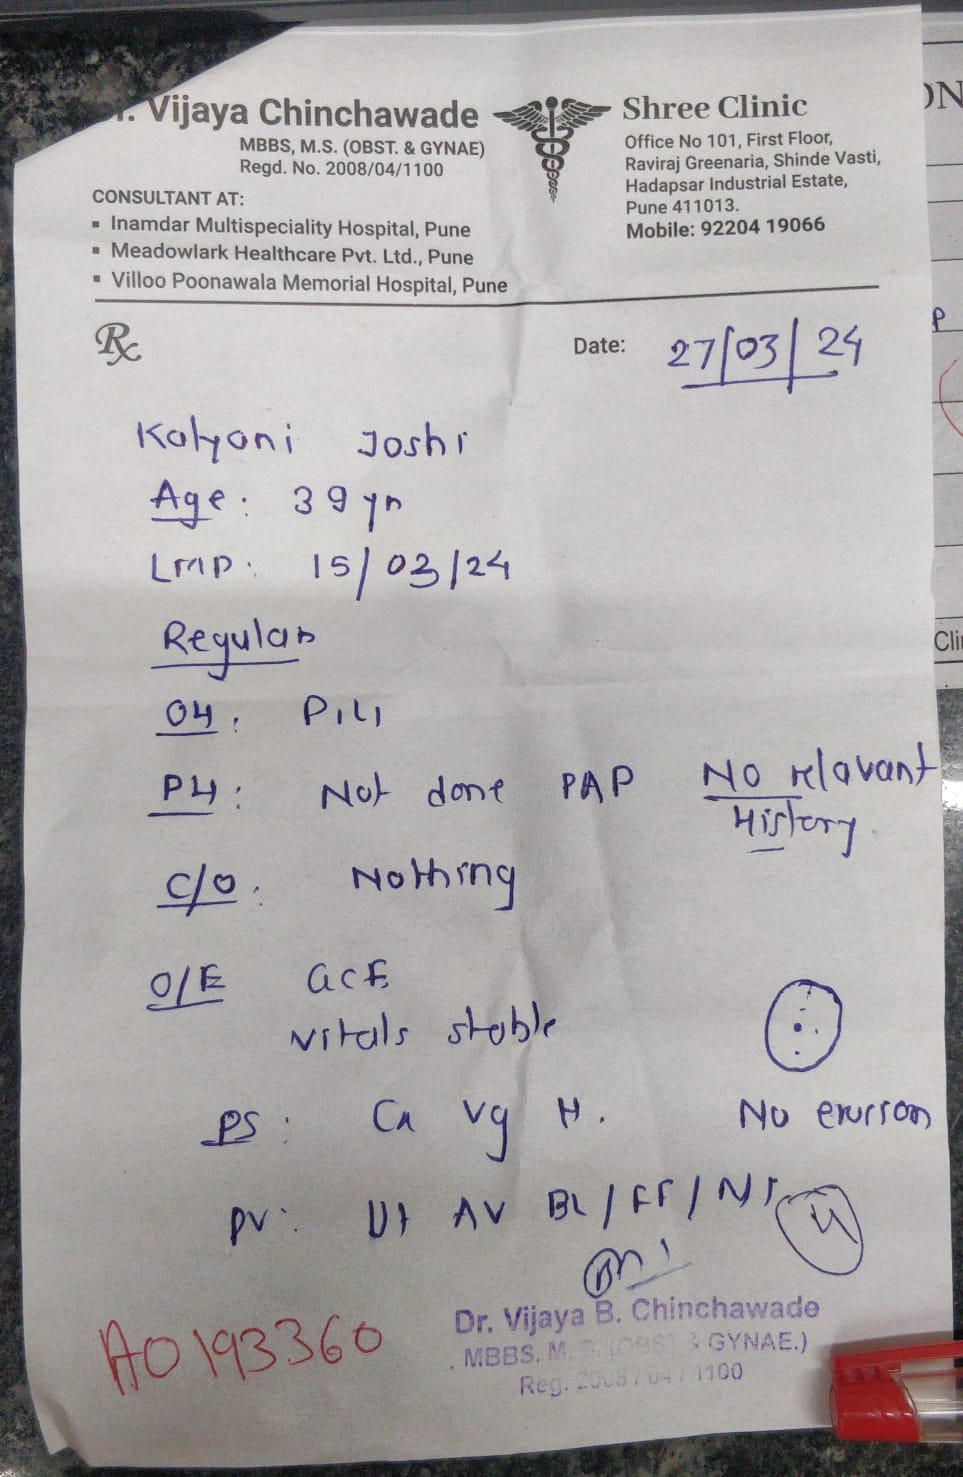 . Vijaya Chinchawade
MBBS, M.S. (OBST. & GYNAE)
Regd. No. 2008/04/1100
CONSULTANT AT:
▪ Inamdar Multispeciality Hospital, Pune
▪ Meadowlark Healthcare Pvt. Ltd., Pune
▪ Villoo Poonawala Memorial Hospital, Pune
Shree Clinic
Office No 101, First Floor,
Raviraj Greenaria, Shinde Vasti,
Hadapsar Industrial Estate,
Pune 411013.
Mobile: 92204 19066
Rx
Date: 27/03/24
Kalyani Joshi
Age: 39 yr
LMP: 15/03/24
Regular
OH: P1L1
PH: Not done PAP No relavant
History.
C/O: Nothing
O/E GCF
Vitals stable
PS: Cx Vg H. No erosion
PV: Ut AV BL/FF/NT
Dr. Vijaya B. Chinchawade
MBBS. M.S. (OBST & GYNAE.)
Reg. 2008/04/1100
A0193360
ON
P
Cli